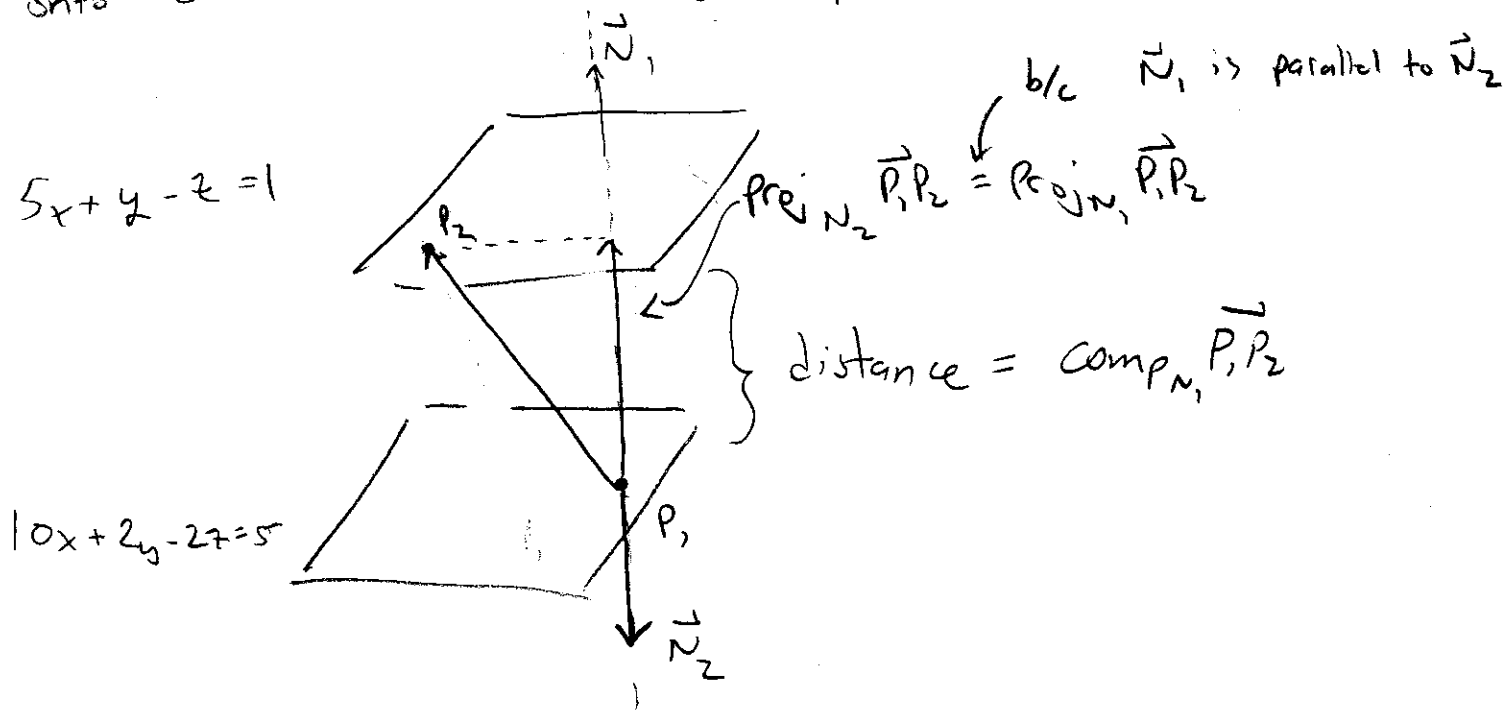 onto
N⃗₁
b/c N⃗₁ is parallel to N⃗₂
5x + y - z = 1
P₂
proj_N₂ P₁P₂⃗ = Proj_N₁ P₁P₂⃗
distance = comp_N₁ P₁P₂⃗
10x + 2y - 2z = 5
P₁
N⃗₂